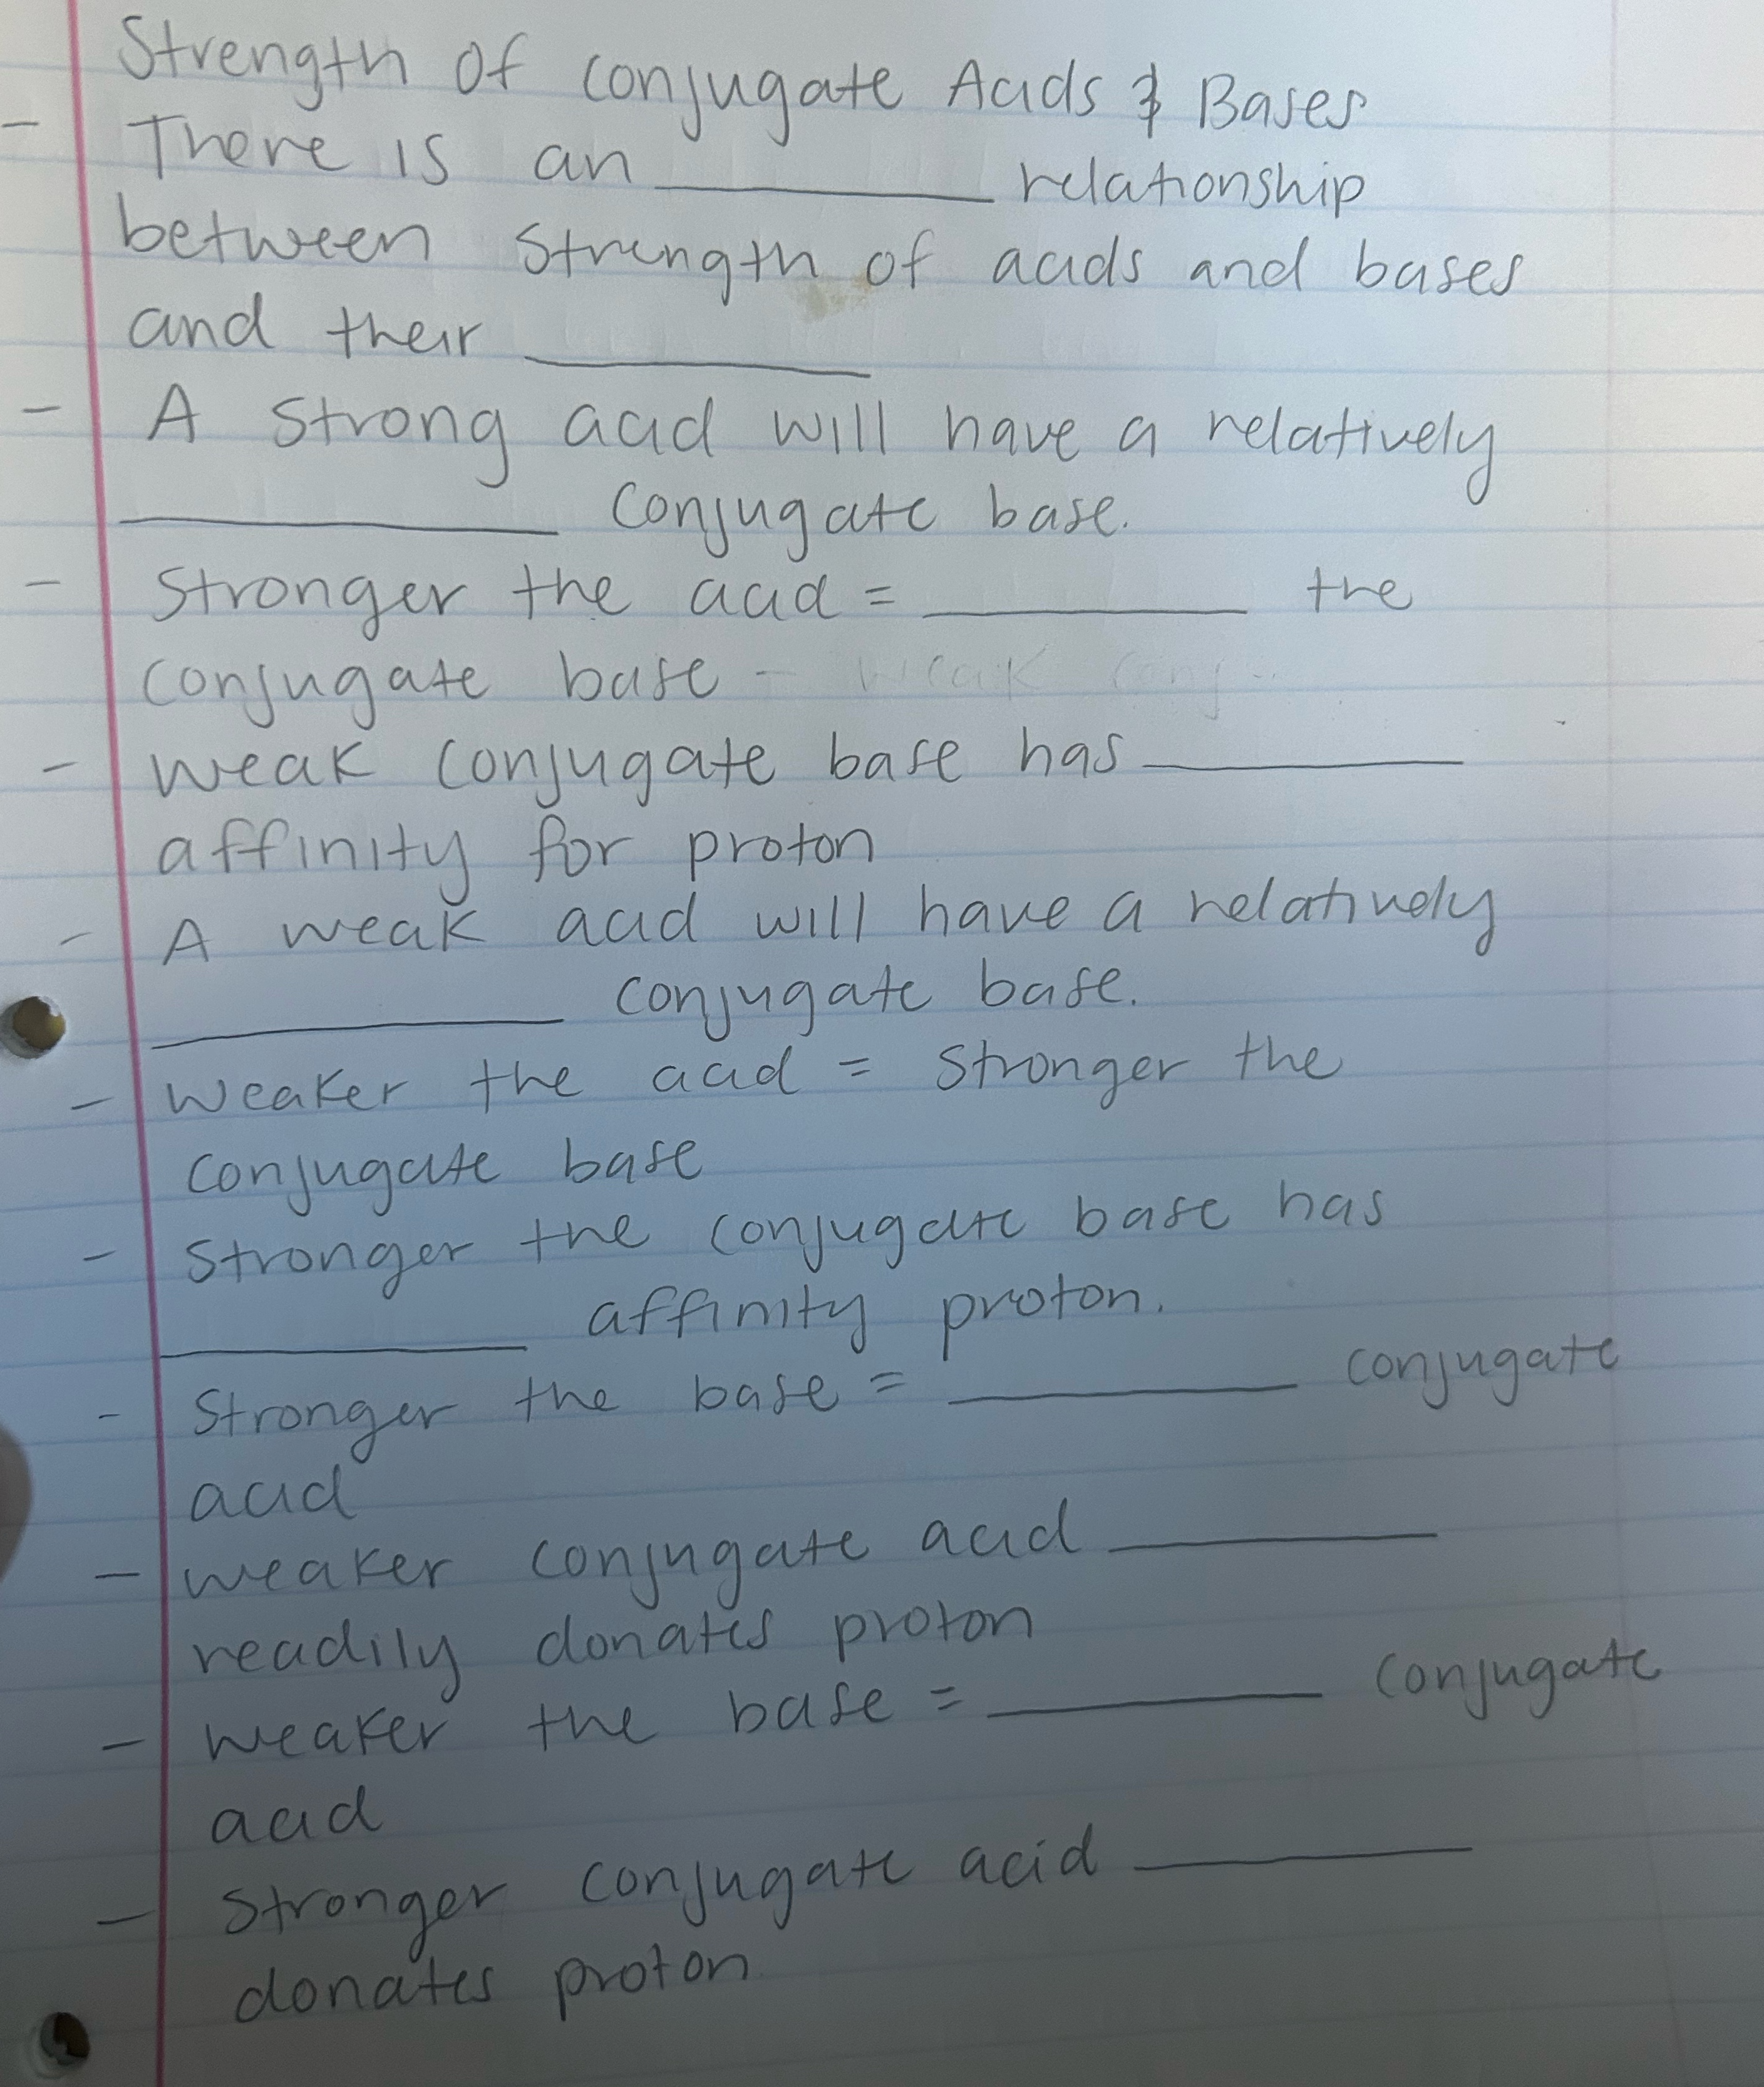 Strength of conjugate Acids & Bases
- There is an ________ relationship
between strength of acids and bases
and their ________
- A strong acid will have a relatively
________ conjugate base.
- Stronger the acid = ________ the
conjugate base - weak conj
- weak conjugate base has ________
affinity for proton
- A weak acid will have a relatively
________ conjugate base.
- weaker the acid = stronger the
conjugate base
- stronger the conjugate base has
________ affinity proton.
- stronger the base = ________ conjugate
acid
- weaker conjugate acid ________
readily donates proton
- weaker the base = ________ conjugate
acid
- stronger conjugate acid ________
donates proton